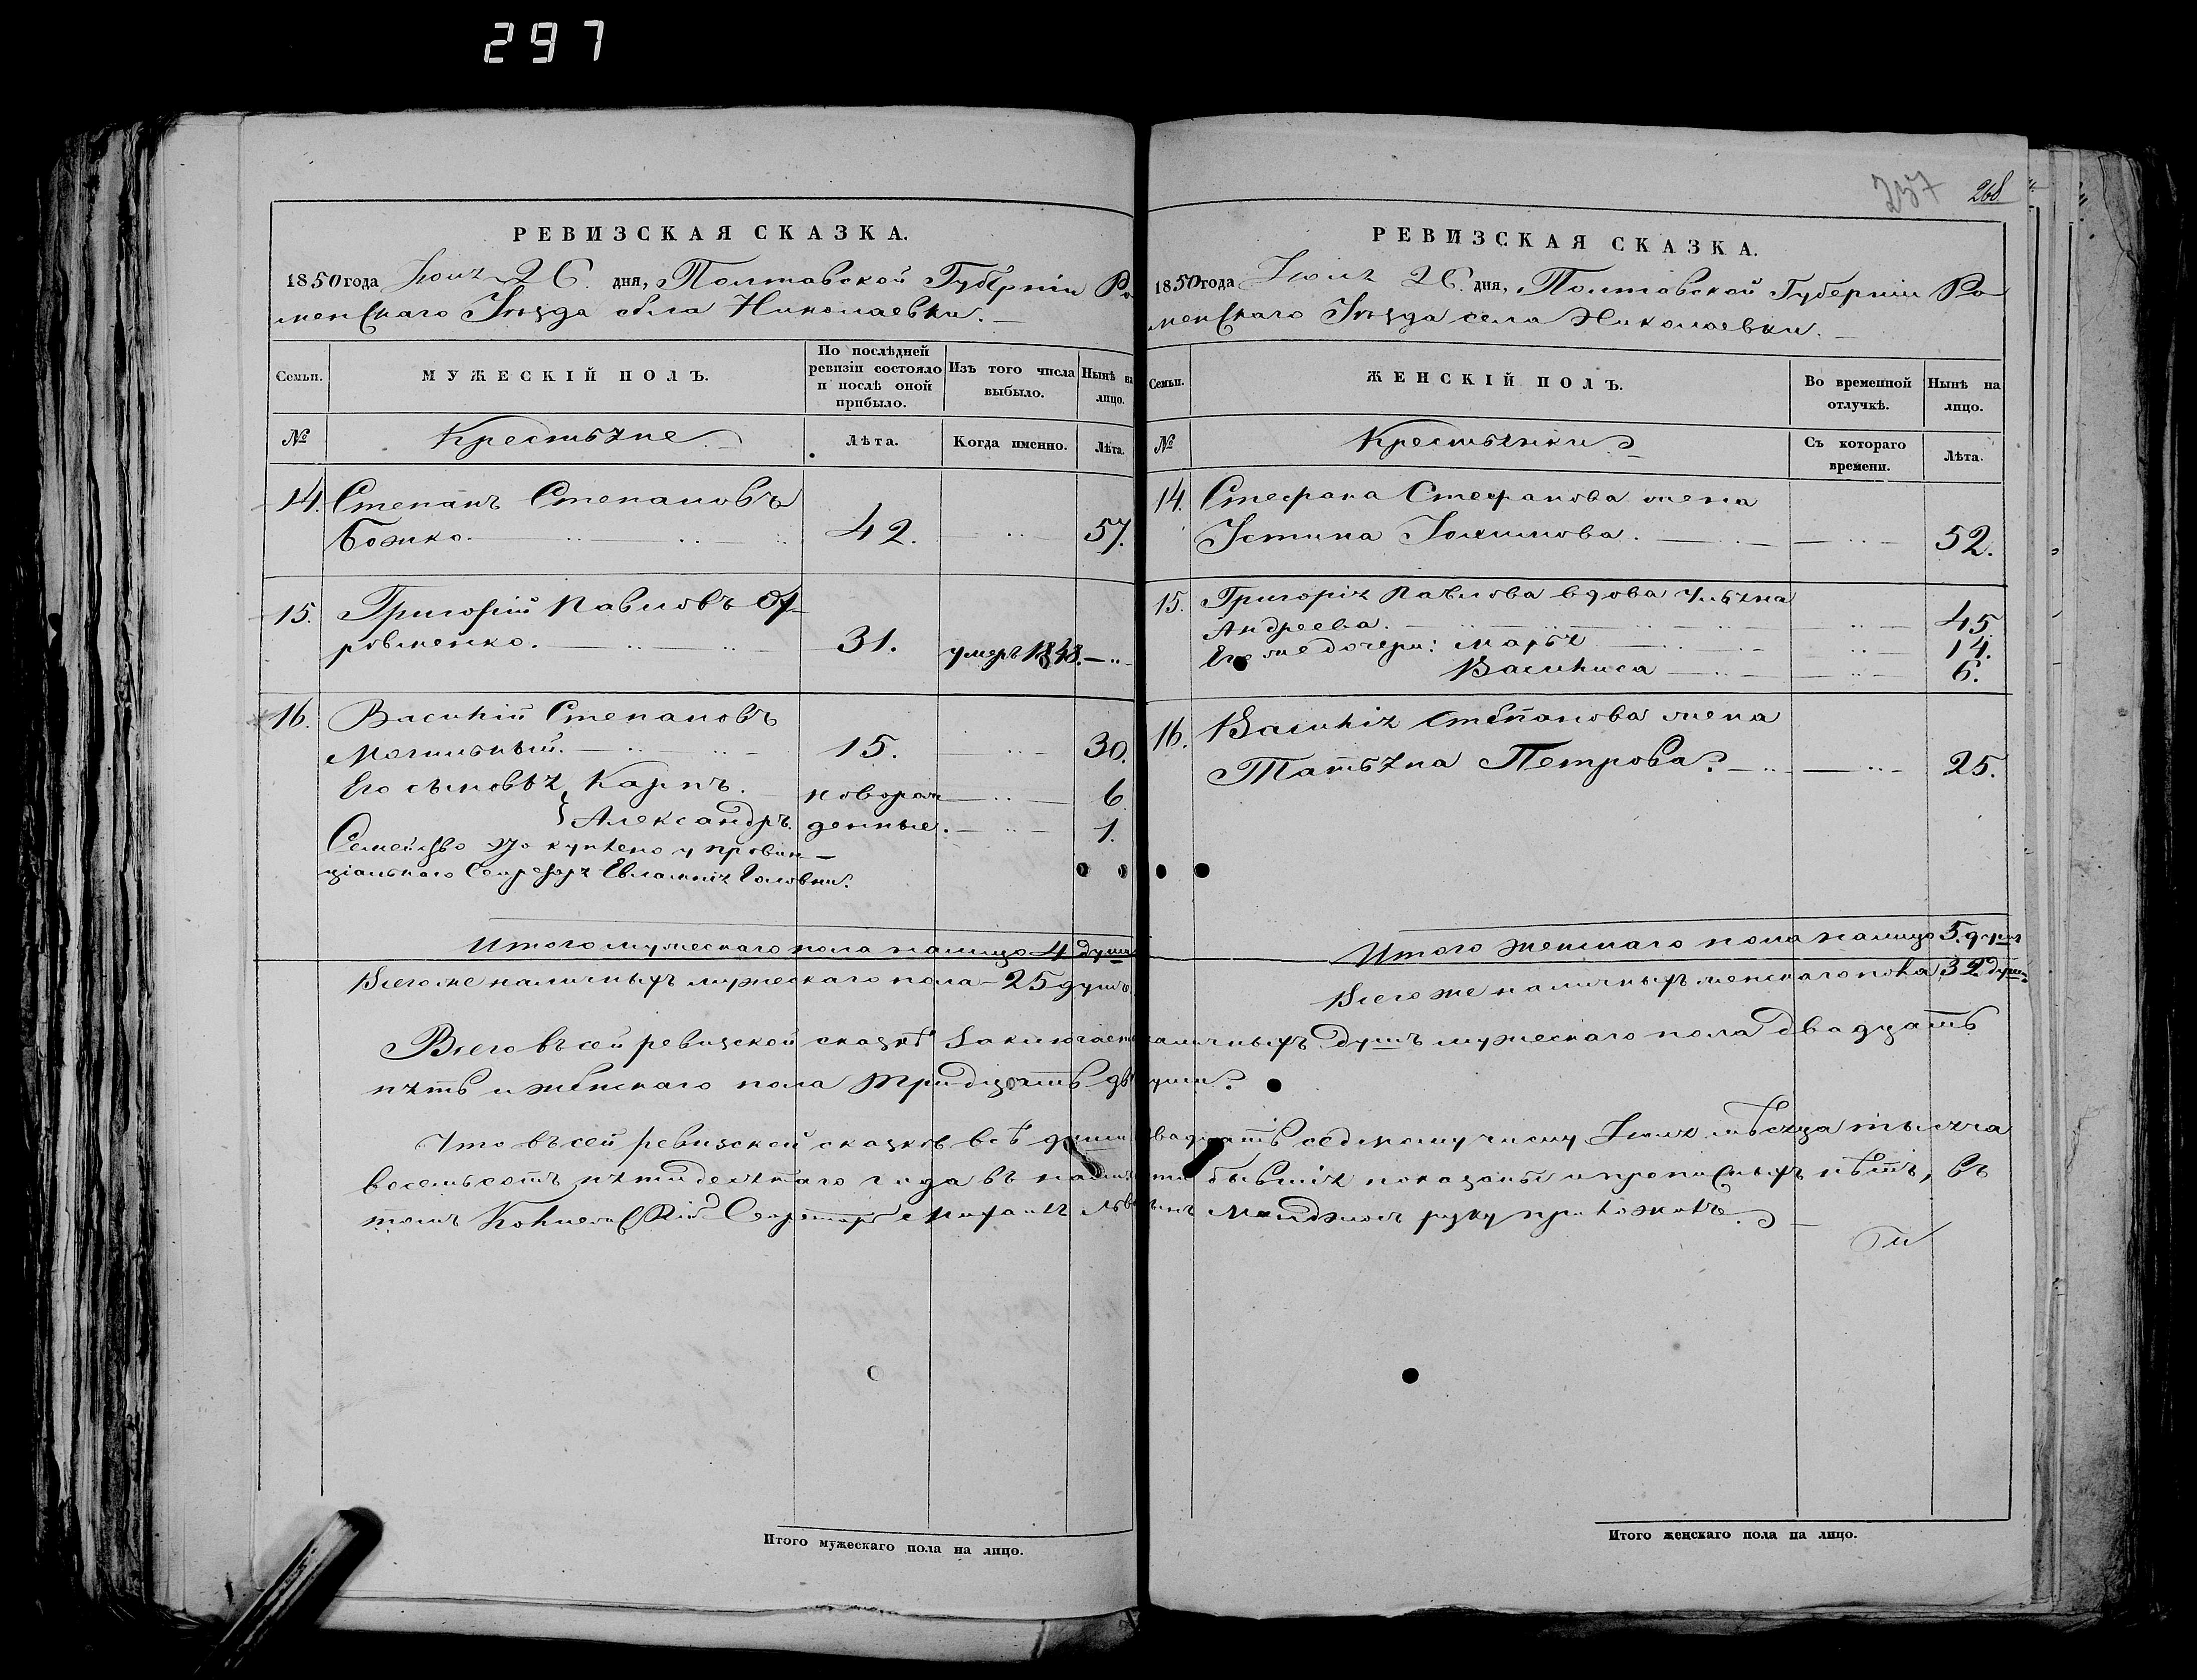 297
257 268
РЕВИЗСКАЯ СКАЗКА.
1850 года Іюля 26. дня, Полтавской Губерніи Ро
менскаго Уѣзда села Николаевки.
Семьи.
МУЖЕСКІЙ ПОЛЪ.
По послѣдней ревизіи состояло и послѣ оной прибыло.
Изъ того числа выбыло.
Нынѣ на лицо.
№
Крестьяне.
Лѣта.
Когда именно.
Лѣта.
14. Степанъ Степановъ
Божко. 42. 57.
15. Григорій Павловъ
31. умеръ 1848.
16. Василій Степановъ
Могильный. 15. 30.
Его сыновья, Карпъ. новорож 6
Александръ. денные. 1.
Семейство это куплено у провин-
ціальнаго Секретаря Евлампія Головни.
Итого мужескаго пола налицо 4 души
Всего же наличныхъ мужескаго пола 25 душъ
РЕВИЗСКАЯ СКАЗКА.
1850 года Іюля 26. дня, Полтавской Губерніи Ро
менскаго Уѣзда села Николаевки.
Семьи.
ЖЕНСКІЙ ПОЛЪ.
Во временной отлучкѣ.
Нынѣ на лицо.
№
Крестьянки
Съ котораго времени.
Лѣта.
14. Стефана Стефанова жена
Устина Іоакимова. 52.
15. Григорія Павлова вдова Ульяна
Андреева. 45
Его же дочери: Марья 14.
Василиса 6.
16. Василія Степанова жена
Татьяна Петрова. 25.
Итого женскаго пола налицо 5. душъ
Всего же наличныхъ женскаго пола 32 души
Всего въ сей ревизской сказкѣ заключается наличныхъ душъ мужескаго пола двадцать
пять и женскаго пола тридцать двѣ души.
Что въ сей ревизской сказкѣ всѣ души двадцать седьмому числу Іюля мѣсяца тысяча
восемьсотъ пятидесятаго года въ наличности бывшія показаны и прописныхъ нѣтъ, въ
томъ Секретарь руку приложилъ.
Итого мужескаго пола на лицо.
Итого женскаго пола на лицо.